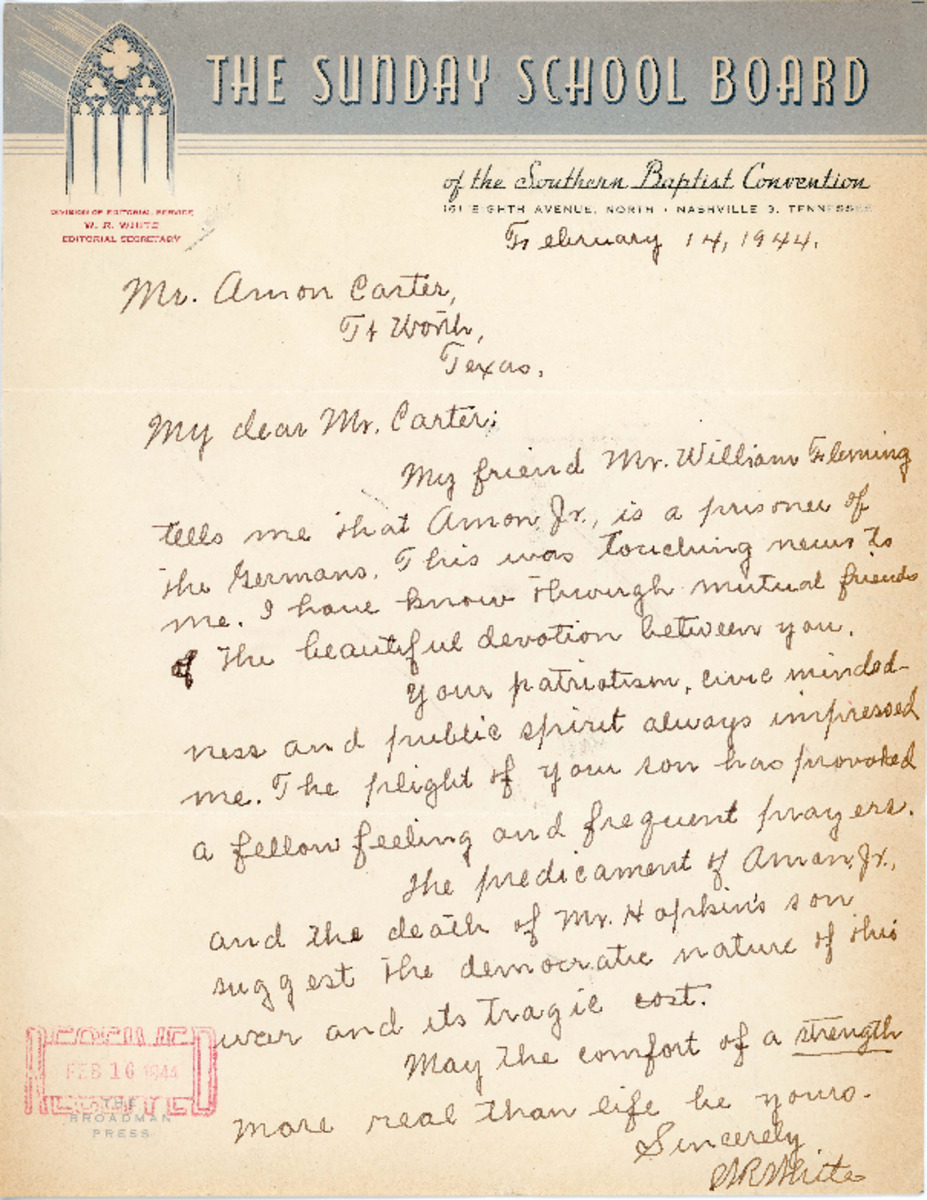 THE SUNDAY SCHOOL BOARD
of the Southern Baptist Convention
161 EIGHTH AVENUE, NORTH • NASHVILLE 3, TENNESSEE
DIVISION OF EDITORIAL SERVICE
W. R. WHITE
EDITORIAL SECRETARY
February 14, 1944.
Mr. Amon Carter,
Ft Worth,
Texas.
My dear Mr. Carter:
My friend Mr. William Fleming
tells me that Amon Jr., is a prisoner of
the Germans. This was touching news to
me. I have know through mutual friends
of the beautiful devotion between you.
Your patriotism, civic minded-
ness and public spirit always impressed
me. The plight of your son has provoked
a fellow feeling and frequent prayers.
The predicament of Amon, Jr.,
and the death of Mr. Hopkin's son
suggest the democratic nature of this
war and its tragic cost.
May the comfort of a strength
more real than life be yours.
Sincerely
W R White
RECEIVED
FEB 16 1944
THE
BROADMAN
PRESS